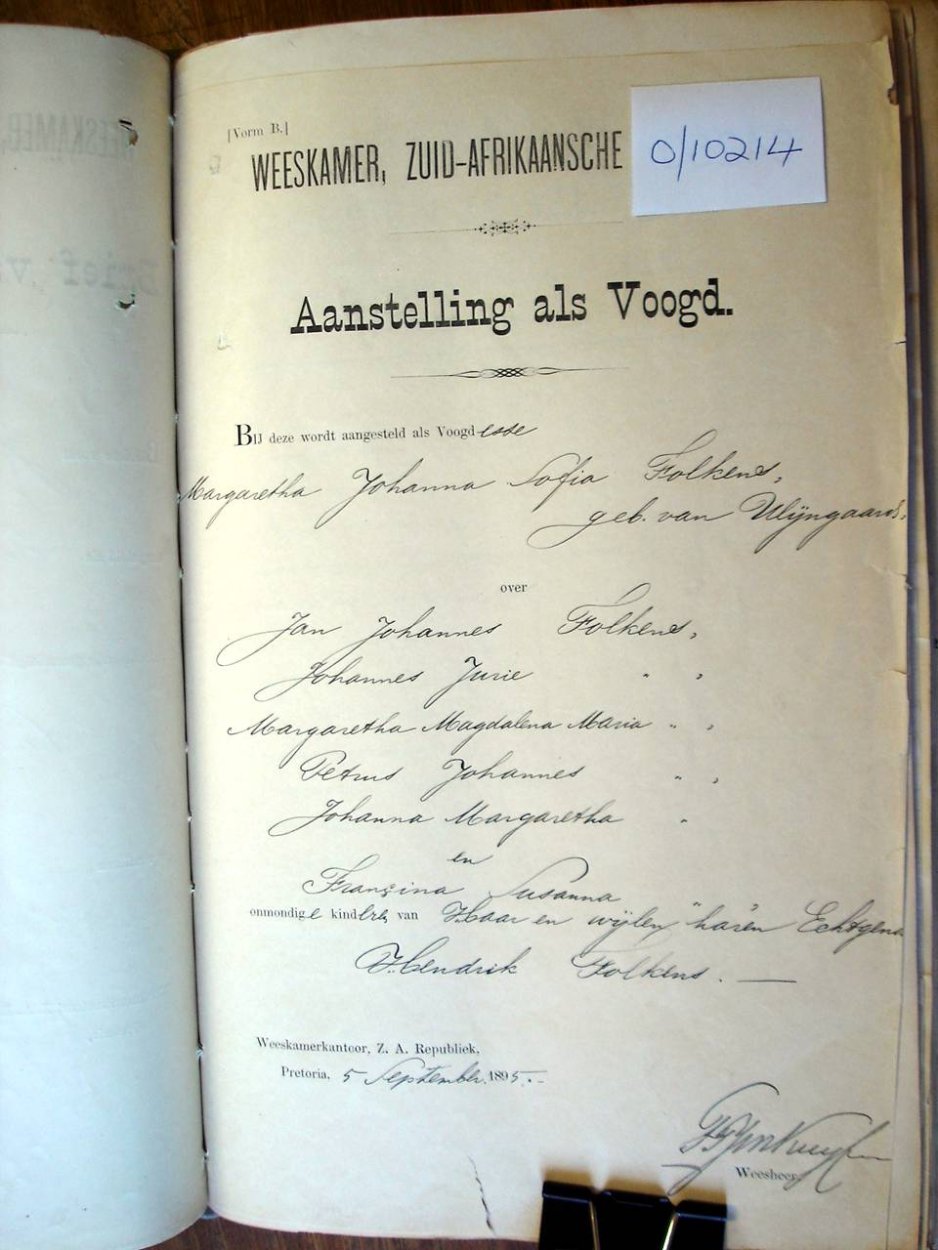 [Vorm B.]
WEESKAMER, ZUID-AFRIKAANSCHE
0/10214
Aanstelling als Voogd.
BIJ deze wordt aangesteld als Voogdesse
Margaretha Johanna Sofia Folkens,
geb. van Wijngaard,
over
Jan Johannes Folkens,
Johannes Jurie " ,
Margaretha Magdalena Maria " ,
Petrus Johannes " ,
Johanna Margaretha "
en
Françina Susanna "
onmondige kindren van Haar en wijlen haren Echtgeno
Hendrik Folkens. —
Weeskamerkantoor, Z. A. Republiek,
Pretoria, 5 September 1895.
Weesheer.